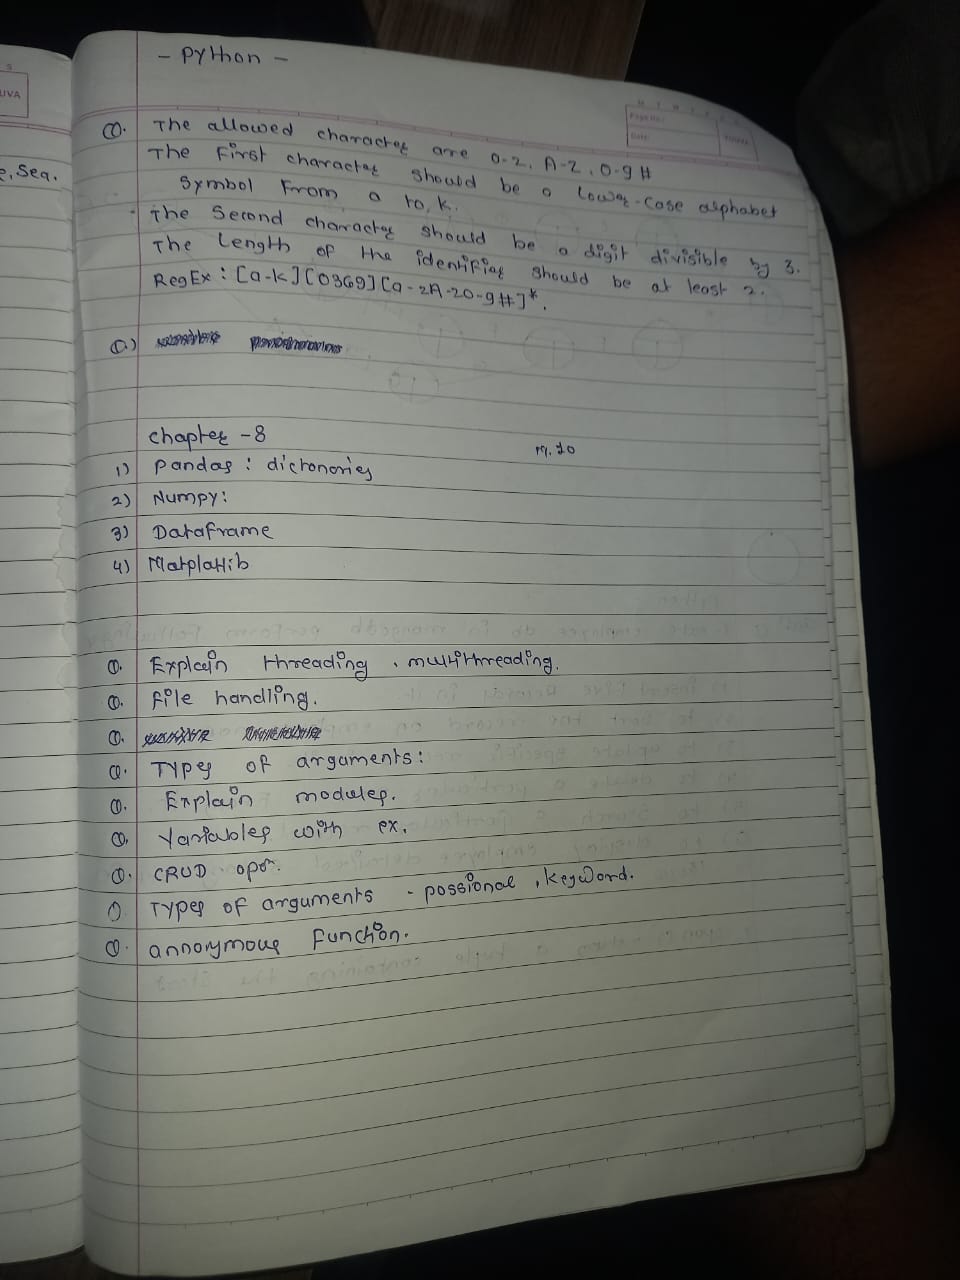 - Python -
Q. The allowed character are a-z, A-Z, 0-9 #
The first character should be a lower-case alphabet
symbol from a to, k.
The second character should be a digit divisible by 3.
The length of the identifier should be at least 2.
RegEx : [a-k][0369][a-zA-Z0-9#]*.
Q.)
chapter -8
M. 10
1) pandas : dictonories
2) Numpy:
3) Dataframe
4) Matplotlib
Q. Explain threading, multithreading.
Q. file handling.
Q.
Q. Types of arguments:
Q. Explain modules.
Q. Variables with ex.
Q. CRUD opn.
Q Types of arguments - possional, keyword.
Q. annonymous function.
e, Sea.
UVA